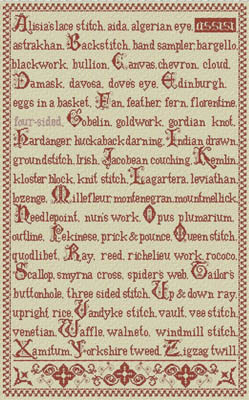 Alisia's lace stitch, aida, algerian eye, assisi
astrakhan, Backstitch, band sampler, bargello,
blackwork, bullion, Canvas, chevron, cloud,
Damask, davosa, dove's eye, Edinburgh,
eggs in a basket, Fan, feather, fern, florentine,
four-sided, Gobelin, goldwork, gordian knot,
Hardanger, huckaback darning, Indian drawn,
groundstitch, Irish, Jacobean couching, Kremlin,
kloster block, knit stitch, Lagartera, leviathan,
lozenge, Millefleur, montenegran, mountmellick,
Needlepoint, nun's work, Opus plumarium,
outline, Pekinese, prick & pounce, Queen stitch,
quodlibet, Ray, reed, richelieu work, rococo,
Scallop, smyrna cross, spider's web, Tailor's
buttonhole, three sided stitch, Up & down ray,
upright rice, Vandyke stitch, vault, vee stitch,
venetian, Waffle, walneto, windmill stitch,
Xamitum, Yorkshire tweed, Zigzag twill